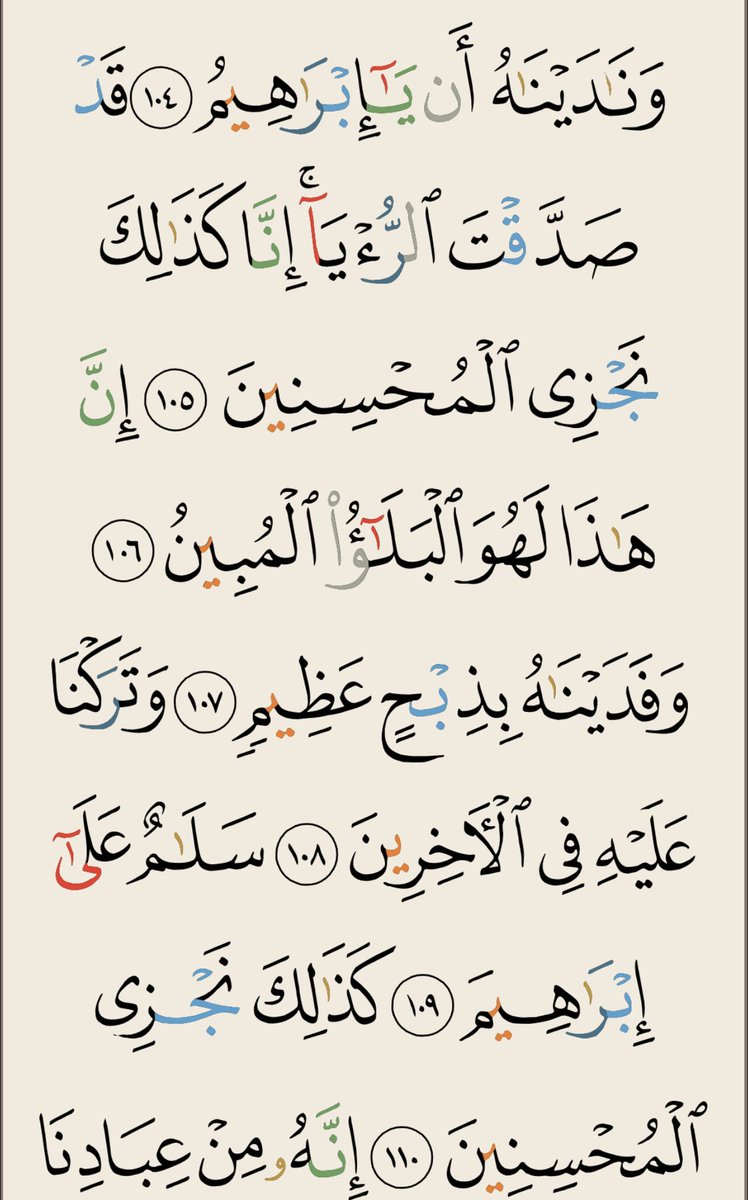 وَنَـٰدَيْنَـٰهُ أَن يَـٰٓإِبْرَٰهِيمُ ١٠٤ قَدْ
صَدَّقْتَ ٱلرُّءْيَآ ۚ إِنَّا كَذَٰلِكَ
نَجْزِى ٱلْمُحْسِنِينَ ١٠٥ إِنَّ
هَـٰذَا لَهُوَ ٱلْبَلَـٰٓؤُا۟ ٱلْمُبِينُ ١٠٦
وَفَدَيْنَـٰهُ بِذِبْحٍ عَظِيمٍ ١٠٧ وَتَرَكْنَا
عَلَيْهِ فِى ٱلْـَٔاخِرِينَ ١٠٨ سَلَـٰمٌ عَلَىٰٓ
إِبْرَٰهِيمَ ١٠٩ كَذَٰلِكَ نَجْزِى
ٱلْمُحْسِنِينَ ١١٠ إِنَّهُۥ مِنْ عِبَادِنَا